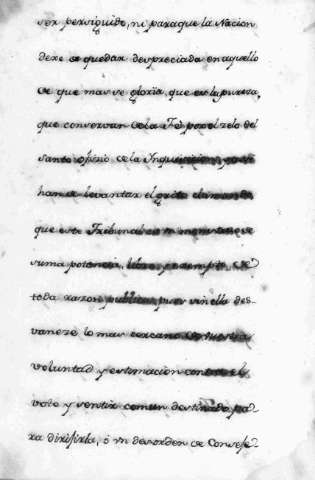 ser persiguido, ni para que la Nacion
dexe de quedar despreciada en aquello
de que mas se gloria, que es la pureza,
que conservan de la Fé por el zelo del
santo oficio de la Inquisicion,
han de levantar el grito clamando
que este Tribunal es
suma potencia, libre, y exempto de
toda razon publica, pues sin ella des-
vaneze lo mas cercano
voluntad y estimacion contra el
voto y sentir comun destinado pa-
ra dirigirla, ó un desorden de Conseje-